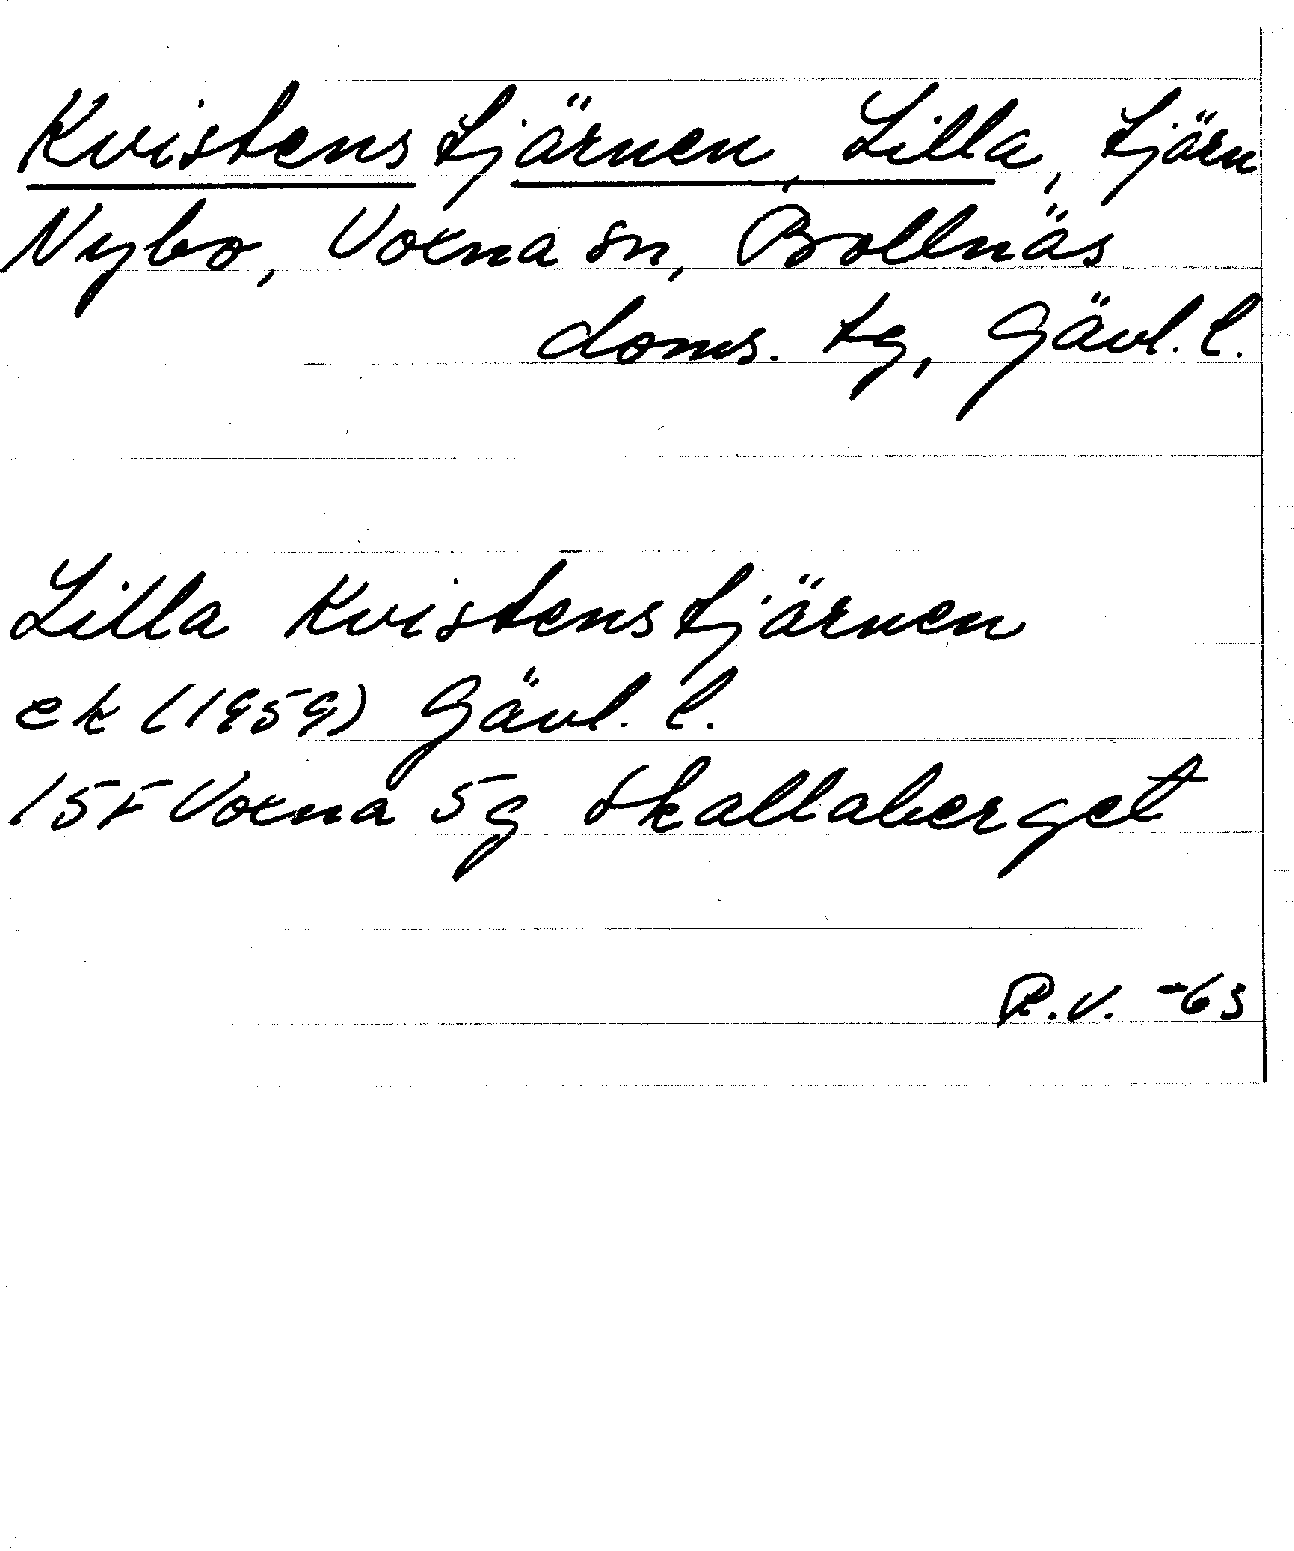 Kvistenstjärnen, Lilla, tjärn
Nybo, Voxna sn, Bollnäs
doms. tg, Gävl. l.
Lilla Kvistenstjärnen
ek (1959) Gävl. l.
15F Voxna 5g Skallaberget
R.V. -63